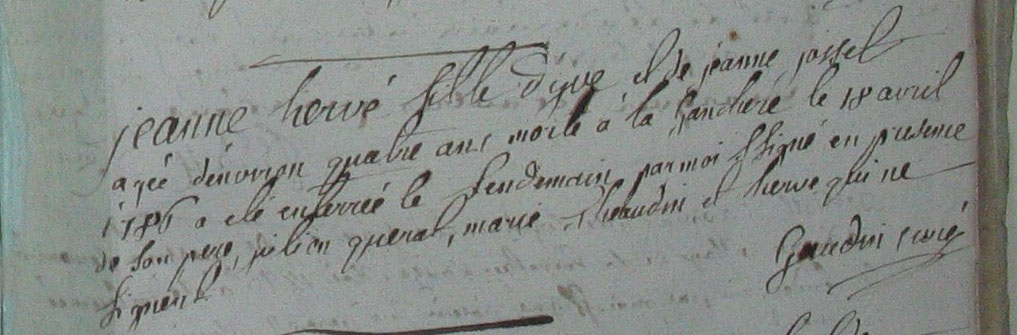 jeanne hervé fille d'yve et de jeanne jossel
agée d'environ quatre ans morte à la le 18 avril
1786 a eté enterrée le lendemain par moi ssigné en presence
de son pere, julien queral, marie et herve qui ne
signent
Gaudin curé